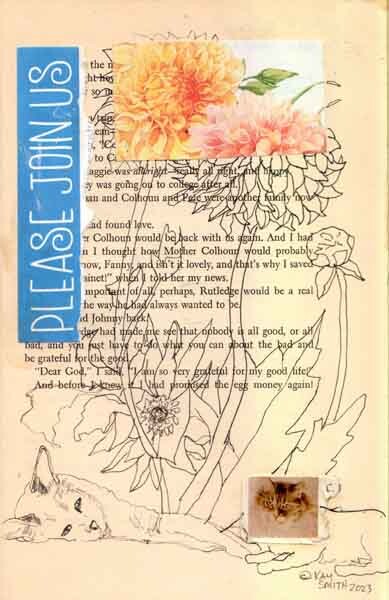 PLEASE JOIN US
the n
ght how
so m
"Co
to C
aggie was allright—really all right, and happy.
ey was going on to college after all.
san and Colhoun and Pete were another family now
ad found love.
er Colhoun would be back with us again. And I had
n I thought how Mother Colhoun would probably
now, Fanny, and isn't it lovely, and that's why I saved
sinet!" when I told her my news.
important of all, perhaps, Rutledge would be a real
he way he had always wanted to be.
d Johnny back!
edge had made me see that nobody is all good, or all
bad, and you just have to do what you can about the bad and
be grateful for the good.
"Dear God," I said, "I am so very grateful for my good life."
And before I knew it I had promised the egg money again!
©KAY
SMITH 2023